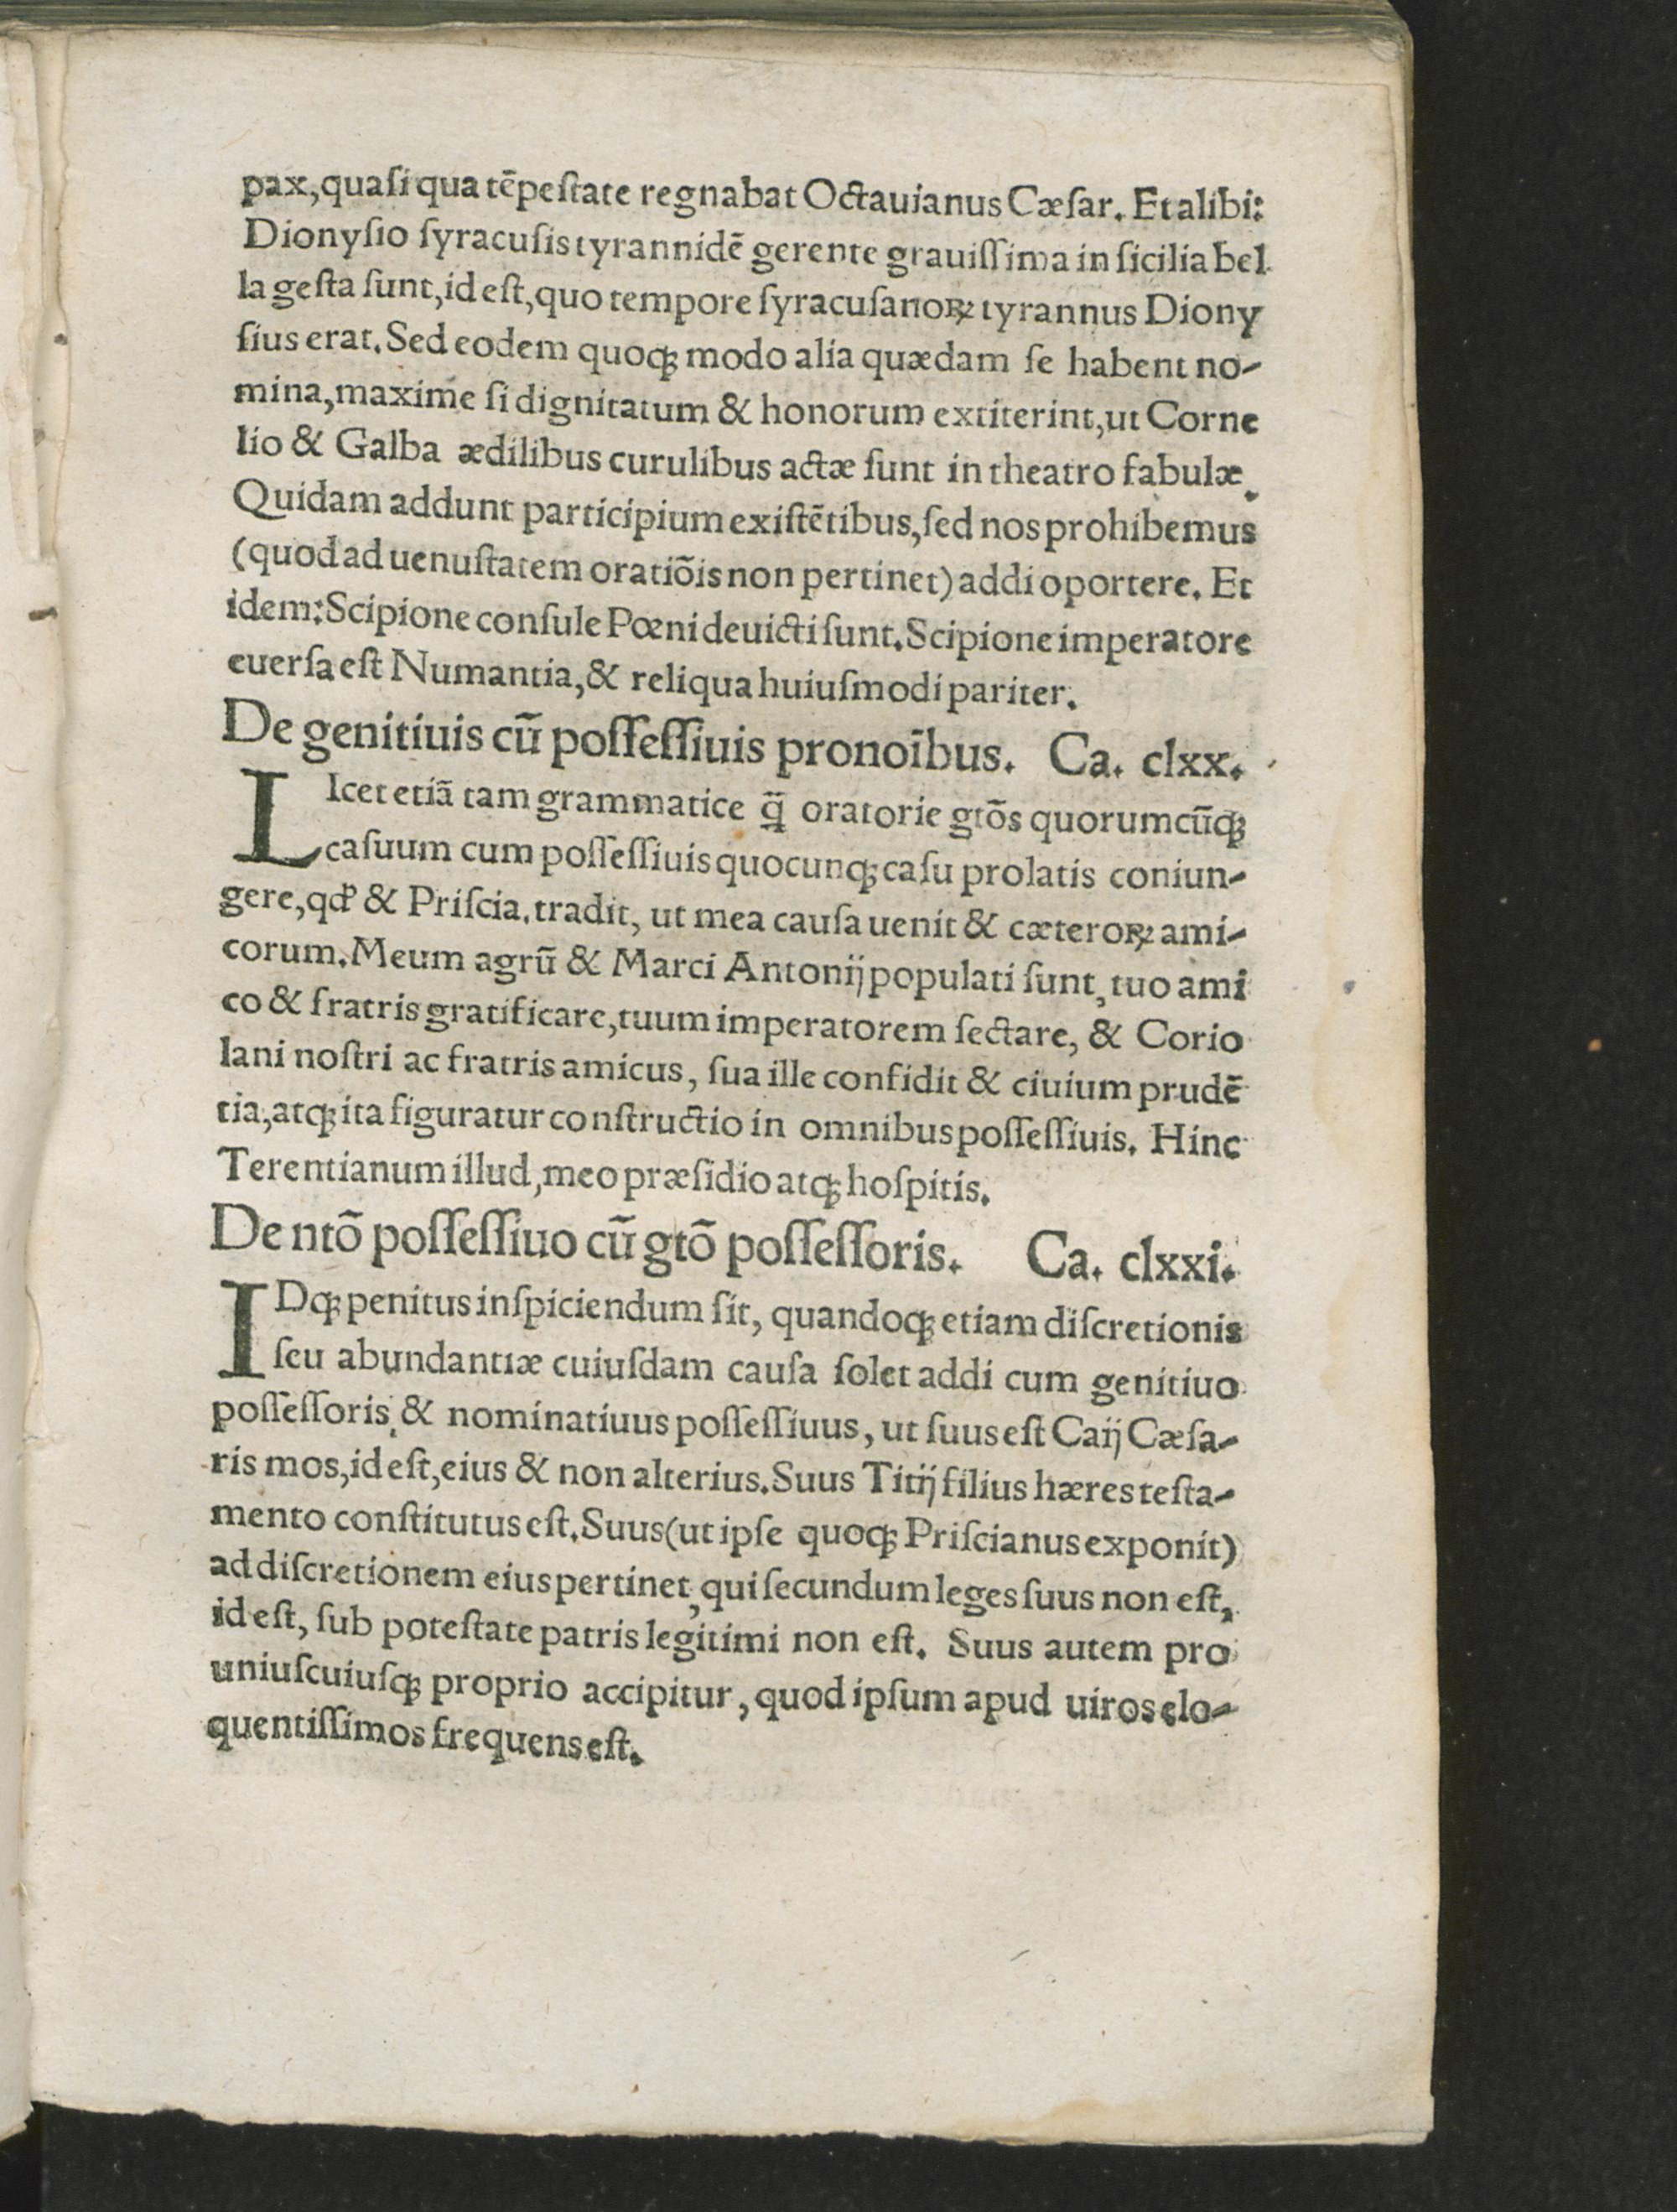 pax,quaſi qua tēpeſtate regnabat Octauianus Cæſar. Et alibi:
Dionyſio ſyracuſis tyrannidē gerente grauiſſima in ſicilia bel
la geſta ſunt,id eſt,quo tempore ſyracuſanoꝝ tyrannus Diony
ſius erat. Sed eodem quoqꝫ modo alia quædam ſe habent no-
mina,maxime ſi dignitatum & honorum extiterint,ut Corne
lio & Galba ædilibus curulibus actæ ſunt in theatro fabulæ.
Quidam addunt participium exiſtētibus,ſed nos prohibemus
(quod ad uenuſtatem oratiōis non pertinet) addi oportere. Et
idem: Scipione conſule Pœni deuicti ſunt. Scipione imperatore
euerſa eſt Numantia,& reliqua huiuſmodi pariter.
De genitiuis cū poſſeſſiuis pronoībus. Ca. clxx.
LIcet etiā tam grammatice q̄ oratorie gtōs quorumcūqꝫ
caſuum cum poſſeſſiuis quocunqꝫ caſu prolatis coniun-
gere,qđ & Priſcia. tradit, ut mea cauſa uenit & cæteroꝝ ami-
corum. Meum agrū & Marci Antonij populati ſunt, tuo ami
co & fratris gratificare,tuum imperatorem ſectare, & Corio
lani noſtri ac fratris amicus, ſua ille confidit & ciuium prudē
tia,atqꝫ ita figuratur conſtructio in omnibus poſſeſſiuis. Hinc
Terentianum illud,meo præſidio atqꝫ hoſpitis.
De ntō poſſeſſiuo cū gtō poſſeſſoris. Ca. clxxi.
IDqꝫ penitus inſpiciendum ſit, quandoqꝫ etiam diſcretionis
ſeu abundantiæ cuiuſdam cauſa ſolet addi cum genitiuo
poſſeſſoris, & nominatiuus poſſeſſiuus, ut ſuus eſt Caij Cæſa-
ris mos,id eſt,eius & non alterius. Suus Titij filius hæres teſta-
mento conſtitutus eſt. Suus (ut ipſe quoqꝫ Priſcianus exponit)
ad diſcretionem eius pertinet, qui ſecundum leges ſuus non eſt,
id eſt, ſub poteſtate patris legitimi non eſt. Suus autem pro
uniuſcuiuſqꝫ proprio accipitur, quod ipſum apud uiros elo-
quentiſſimos frequens eſt.